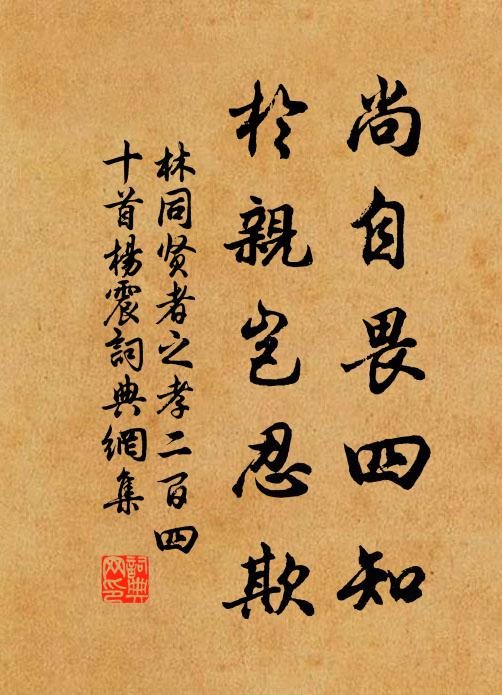 尚自畏四知
於親岂忍欺
林同贤者之孝二百四
十首楊震詞典網集
詞典
网印